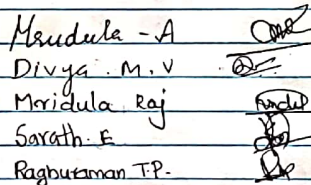 Mrudula - A
Divya. M. V
Mridula Raj
Sarath. E
Raghuraman T.P.